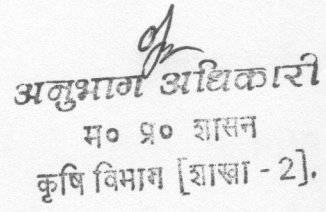 अनुभाग अधिकारी
म० प्र० शासन
कृषि विभाग [शाखा - 2].